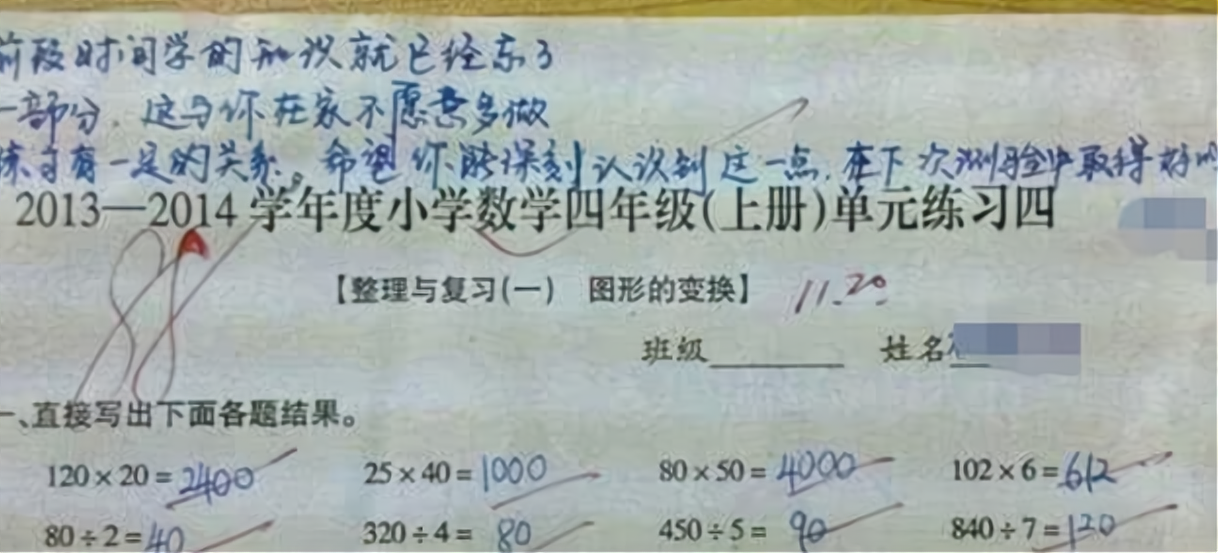 前段时间学的知识就已经忘了
一部分，这与你在家不愿意多做
练习有一定的关系。希望你能深刻认识到这一点，在下次测验中取得好的
2013—2014学年度小学数学四年级(上册)单元练习四
88
【整理与复习(一) 图形的变换】 11.20
班级 姓名
一、直接写出下面各题结果。
120×20=2400 25×40=1000 80×50=4000 102×6=612
80÷2=40 320÷4=80 450÷5=90 840÷7=120